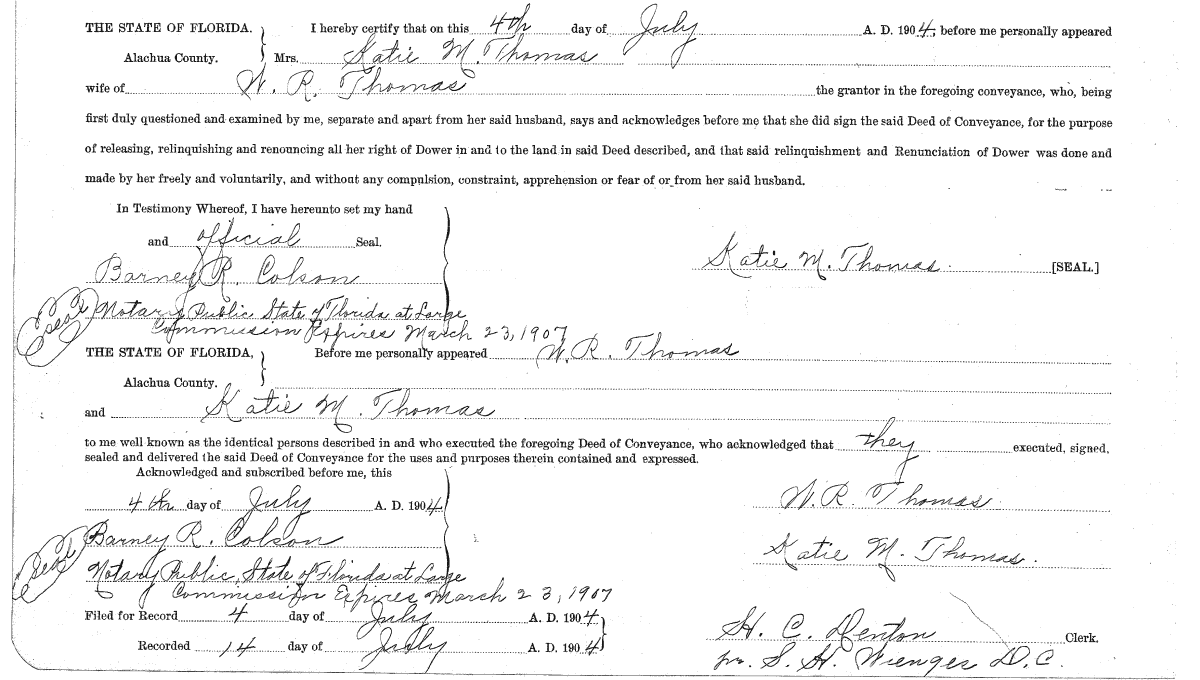 THE STATE OF FLORIDA. } I hereby certify that on this 4th day of July A. D. 1904, before me personally appeared
Alachua County. } Mrs. Katie M. Thomas
wife of W. R. Thomas the grantor in the foregoing conveyance, who, being
first duly questioned and examined by me, separate and apart from her said husband, says and acknowledges before me that she did sign the said Deed of Conveyance, for the purpose
of releasing, relinquishing and renouncing all her right of Dower in and to the land in said Deed described, and that said relinquishment and Renunciation of Dower was done and
made by her freely and voluntarily, and without any compulsion, constraint, apprehension or fear of or from her said husband.
In Testimony Whereof, I have hereunto set my hand
and official Seal.
Katie M. Thomas [SEAL.]
Barney R. Colson
(Seal) Notary Public State of Florida at Large
Commission Expires March 23, 1907
THE STATE OF FLORIDA, } Before me personally appeared W. R. Thomas
Alachua County. }
and Katie M. Thomas
to me well known as the identical persons described in and who executed the foregoing Deed of Conveyance, who acknowledged that they executed, signed,
sealed and delivered the said Deed of Conveyance for the uses and purposes therein contained and expressed.
Acknowledged and subscribed before me, this
4th day of July A. D. 1904 W. R. Thomas
Barney R. Colson Katie M. Thomas.
(Seal) Notary Public, State of Florida at Large
Commission Expires March 23, 1907
Filed for Record 4 day of July A. D. 1904 }
Recorded 14 day of July A. D. 1904 } H. C. Denton Clerk.
pr. S. H. Wienges D. C.